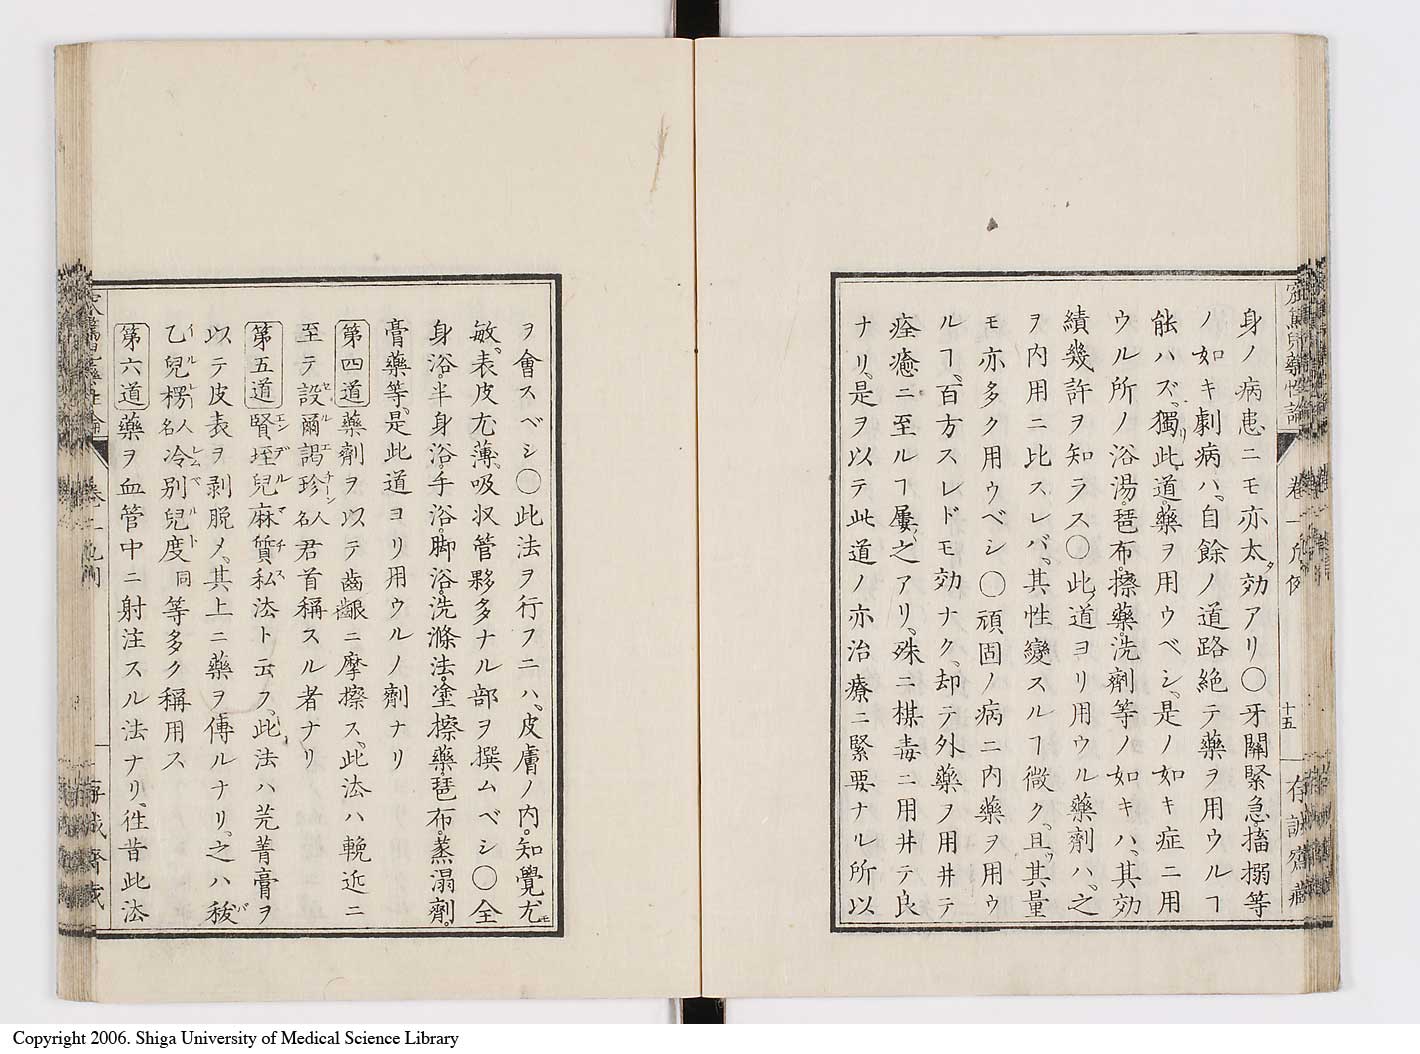 身ノ病患ニモ亦太タ効アリ〇牙關緊急搐搦等
ノ如キ劇病ハ、自餘ノ道路絶テ藥ヲ用ウルヿ
能ハズ、獨リ此道。藥ヲ用ウベシ、是ノ如キ症ニ用
ウル所ノ浴湯。琶布。擦藥。洗劑等ノ如キハ、其効
績幾許ヲ知ラス〇此道ヨリ用ウル藥劑ハ、之
ヲ内用ニ比スレバ、其性變スルヿ微ク、且ツ其量
モ亦多ク用ウベシ〇頑固ノ病ニ内藥ヲ用ウ
ルヿ、百方スレドモ効ナク、却テ外藥ヲ用井テ
痊癒ニ至ルヿ屢之アリ、殊ニ楳毒ニ用井テ良
ナリ、是ヲ以テ此道ノ亦治療ニ緊要ナル所以
卷一凡例
十五
存誠齋藏
ヲ會スベシ〇此法ヲ行フニハ、皮膚ノ内。知覺尤モ
敏、表皮尤薄、吸収管夥多ナル部ヲ撰ムベシ〇全
身浴。半身浴。手浴。脚浴。洗滌法。塗擦藥。琶布。蒸溻劑。
膏藥等、是此道ヨリ用ウルノ劑ナリ
第四道 藥劑ヲ以テ齒齦ニ摩擦ス、此法ハ輓近ニ
至テ設爾謁珍セルエチーン人名君首稱スル者ナリ
第五道 賢垤兒麻質私エンデルマチス法ト云フ、此法ハ芫菁膏ヲ
以テ皮表ヲ剥脱メ、其上ニ藥ヲ傅ルナリ、之ハ秡バ
乙兒楞イールレン人名冷別兒度レムベルト同等多ク稱用ス
第六道 藥ヲ血管中ニ射注スル法ナリ、徃昔此法
Copyright 2006. Shiga University of Medical Science Library